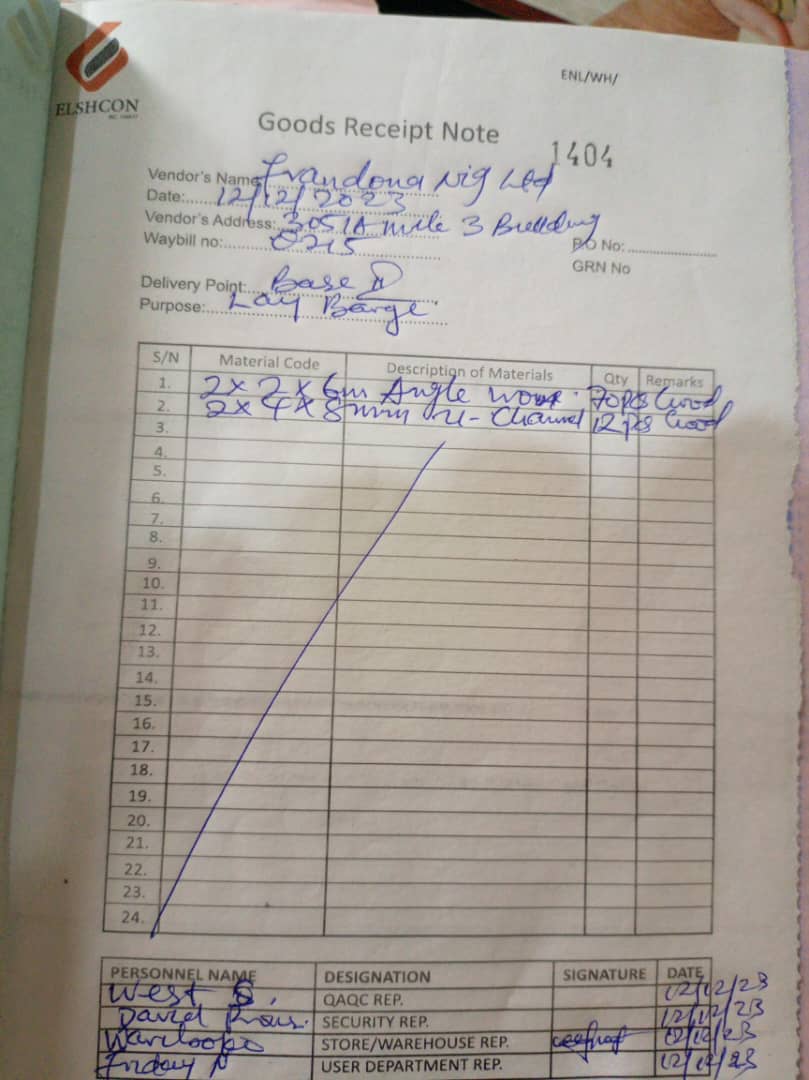 ELSHCON
ENL/WH/
Goods Receipt Note
1404
Vendor's Name Frandona Nig Ltd
Date: 12/12/2023
Vendor's Address: 305 1A mile 3 Building
P.O No:
Waybill no: 0215
GRN No
Delivery Point: Base
Purpose: Lay Barge
S/N Material Code Description of Materials Qty Remarks
1. 2x2x6m Angle 70pcs Good
2. 2x4x8mm u-Channel 12pcs Good
3.
4.
5.
6.
7.
8.
9.
10.
11.
12.
13.
14.
15.
16.
17.
18.
19.
20.
21.
22.
23.
24.
PERSONNEL NAME DESIGNATION SIGNATURE DATE
West QAQC REP. 12/12/23
David SECURITY REP. 12/12/23
STORE/WAREHOUSE REP. 12/12/23
Friday N USER DEPARTMENT REP. 12/12/23